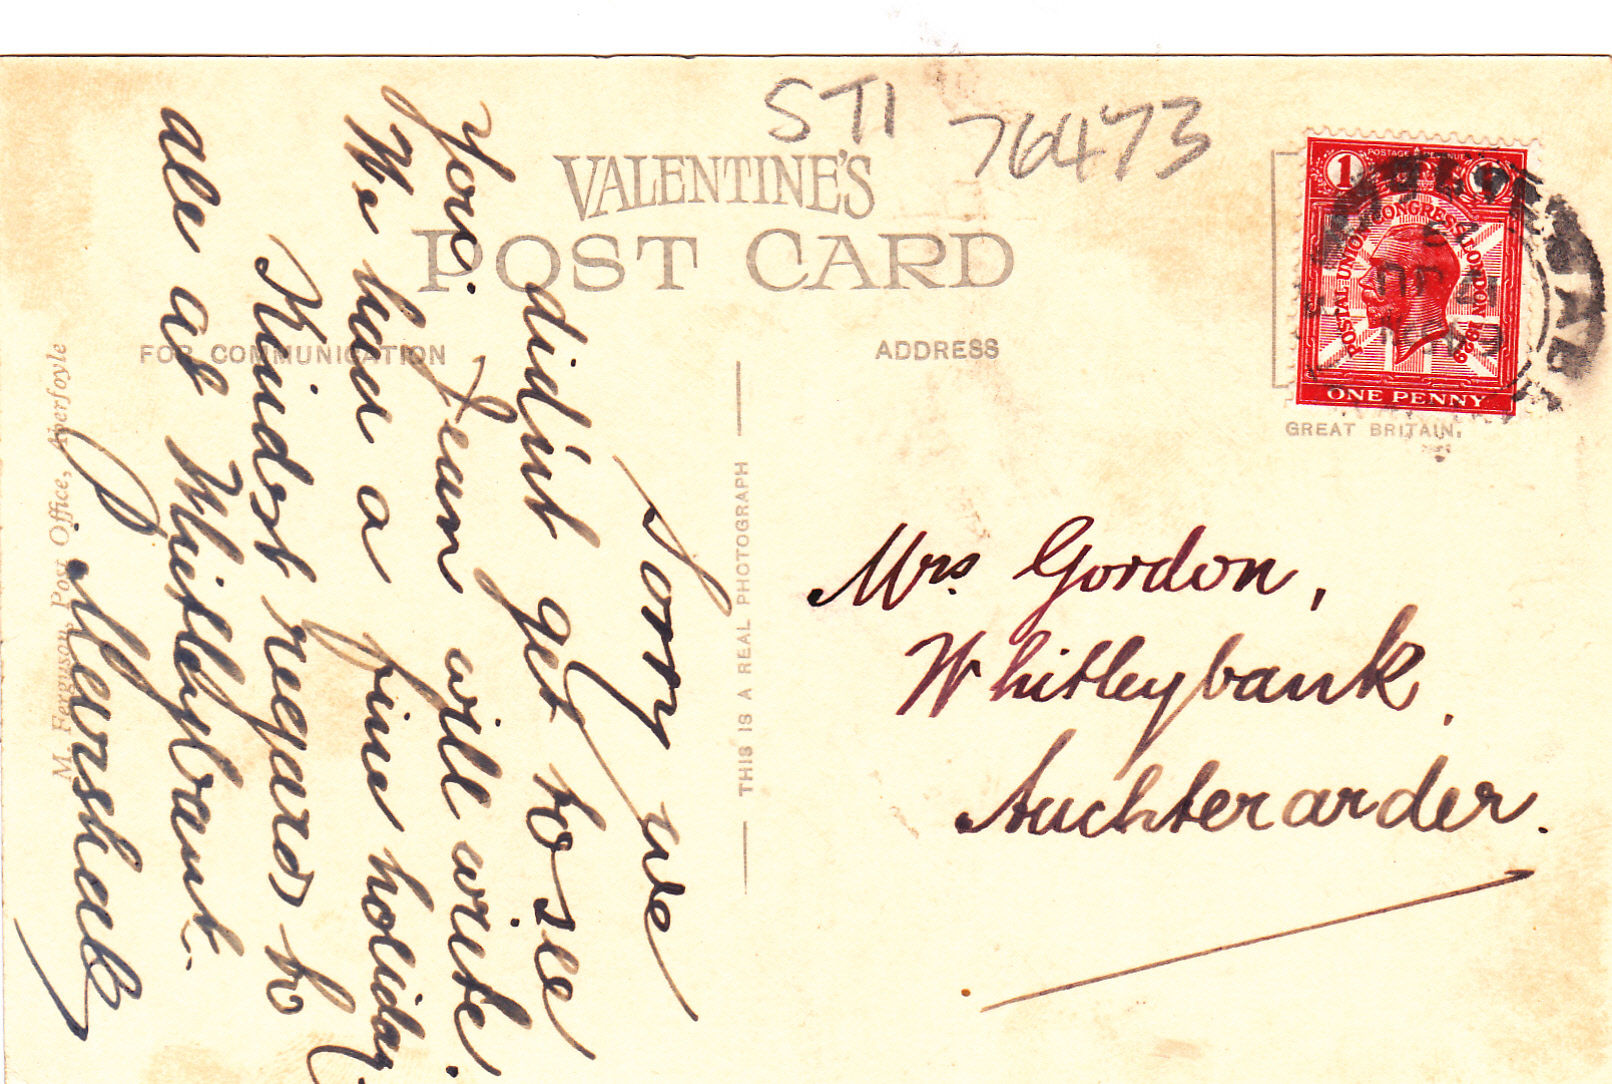 STI 76473
VALENTINE'S
POST CARD
FOR COMMUNICATION
ADDRESS
1 POSTAGE REVENUE 1
POSTAL UNION CONGRESS LONDON 1929
ONE PENNY
GREAT BRITAIN.
THIS IS A REAL PHOTOGRAPH
M. Ferguson, Post Office, Aberfoyle
Sorry we
didn't get to see
you. Jean will write.
We had a fine holiday.
Kindest regards to
all at Whitleybank.
Mrs. Gordon,
Whitleybank.
Auchterarder.